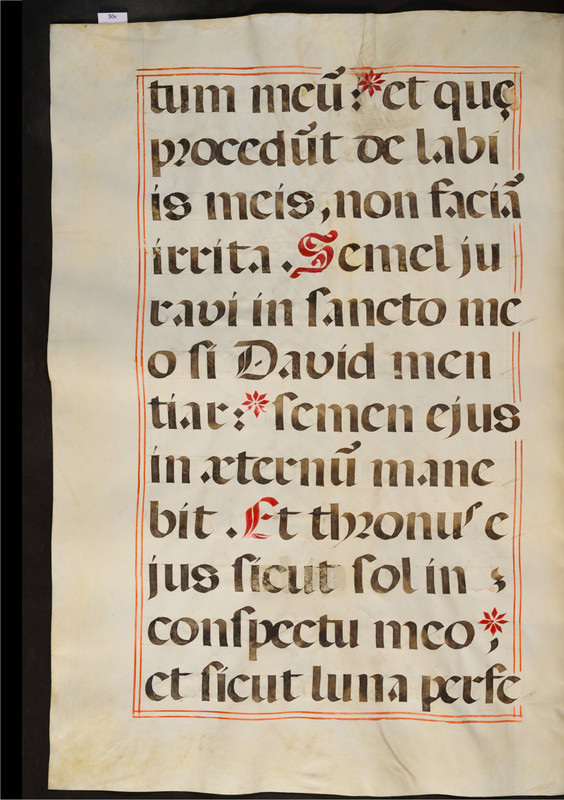 30v
tum meū: * et quę
procedūt de labi
is meis, non faciā
irrita. Semel ju
ravi in ſancto me
o ſi David men
tiar: * ſemen ejus
in æternū mane
bit. Et thronuſ e
jus ſicut ſol in
conſpectu meo, *
et ſicut luna perfe